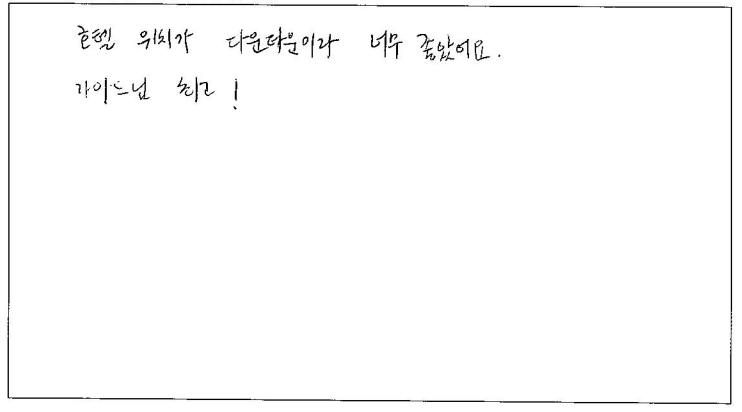 호텔 위치가 다운타운이라 너무 좋았어요.
가이드님 최고!